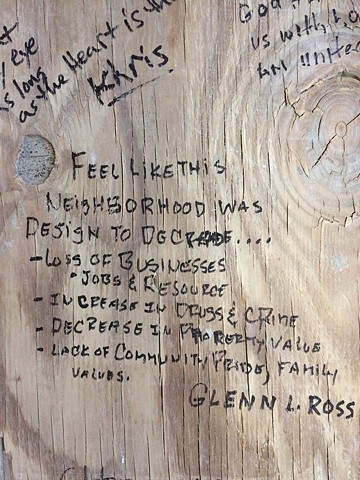 eye
as long
as the heart is the
Chris
God
us with
am united
FEEL LIKE THIS
NEIGHBORHOOD WAS
DESIGN TO DECREDE....
- LOSS OF BUSINESSES
• JOBS & RESOURCE
- INCREASE IN DRUGS & CRIME
- DECREASE IN PROPERTY VALUE
- LACK OF COMMUNITY PRIDE, FAMILY
VALUES.
GLENN L. ROSS